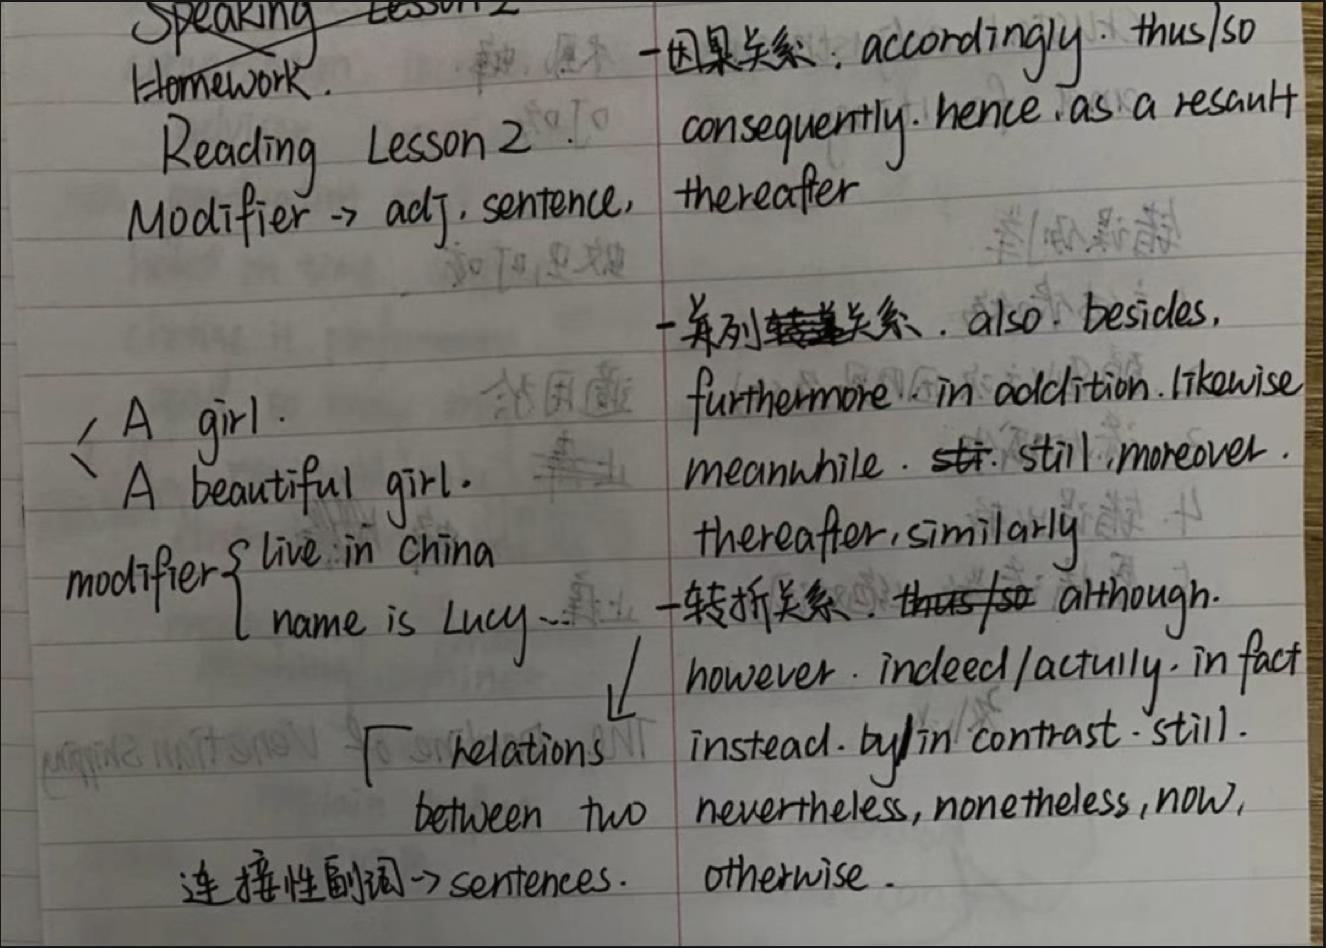 Speaking Lesson 2
Homework.
Reading Lesson 2.
Modifier → adj. sentence,
A girl.
A beautiful girl.
modifier { live in China
name is Lucy...
relations
between two
连接性副词→sentences.
-因果关系: accordingly. thus/so
consequently. hence. as a resault
thereafter
-并列关系. also. besides.
furthermore. in addition. likewise
meanwhile. still, moreover.
thereafter, similarly
-转折关系. thus/so although.
however. indeed/actully. in fact
instead. by/in contrast. still.
nevertheless, nonetheless, now,
otherwise.